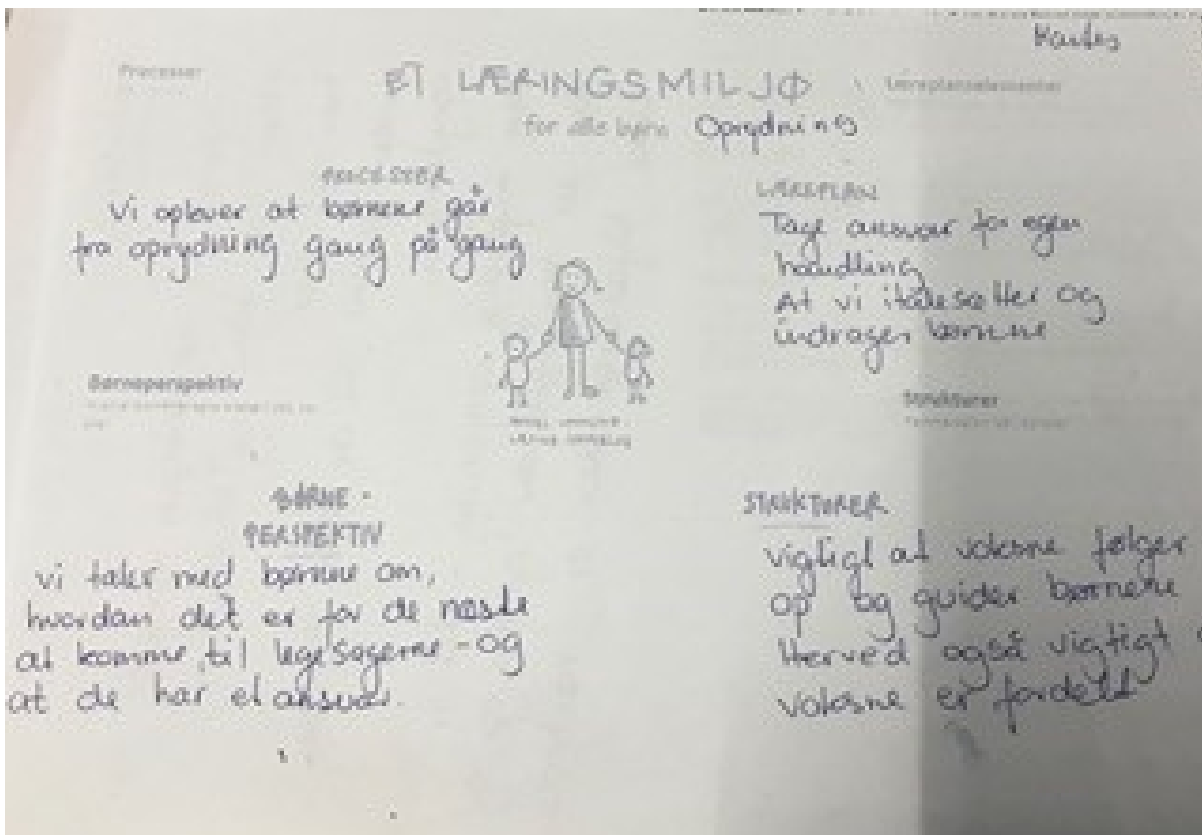 Processer
ET LÆRINGSMILJØ
for alle børn Oprydning
PROCESSER
Vi oplever at børnene går
fra oprydning gang på gang
LÆREPLAN
Tage ansvar for egen
handling
At vi italesætter og
indrager børnene
Børneperspektiv
Strukturer
BØRNE-
PERSPEKTIV
vi taler med børnene om,
hvordan det er for de næste
at komme til legesagerne - og
at de har et ansvar.
STRUKTURER
vigtigt at voksne følger
op og guider børnene
Herved også vigtigt
voksne er fordelt